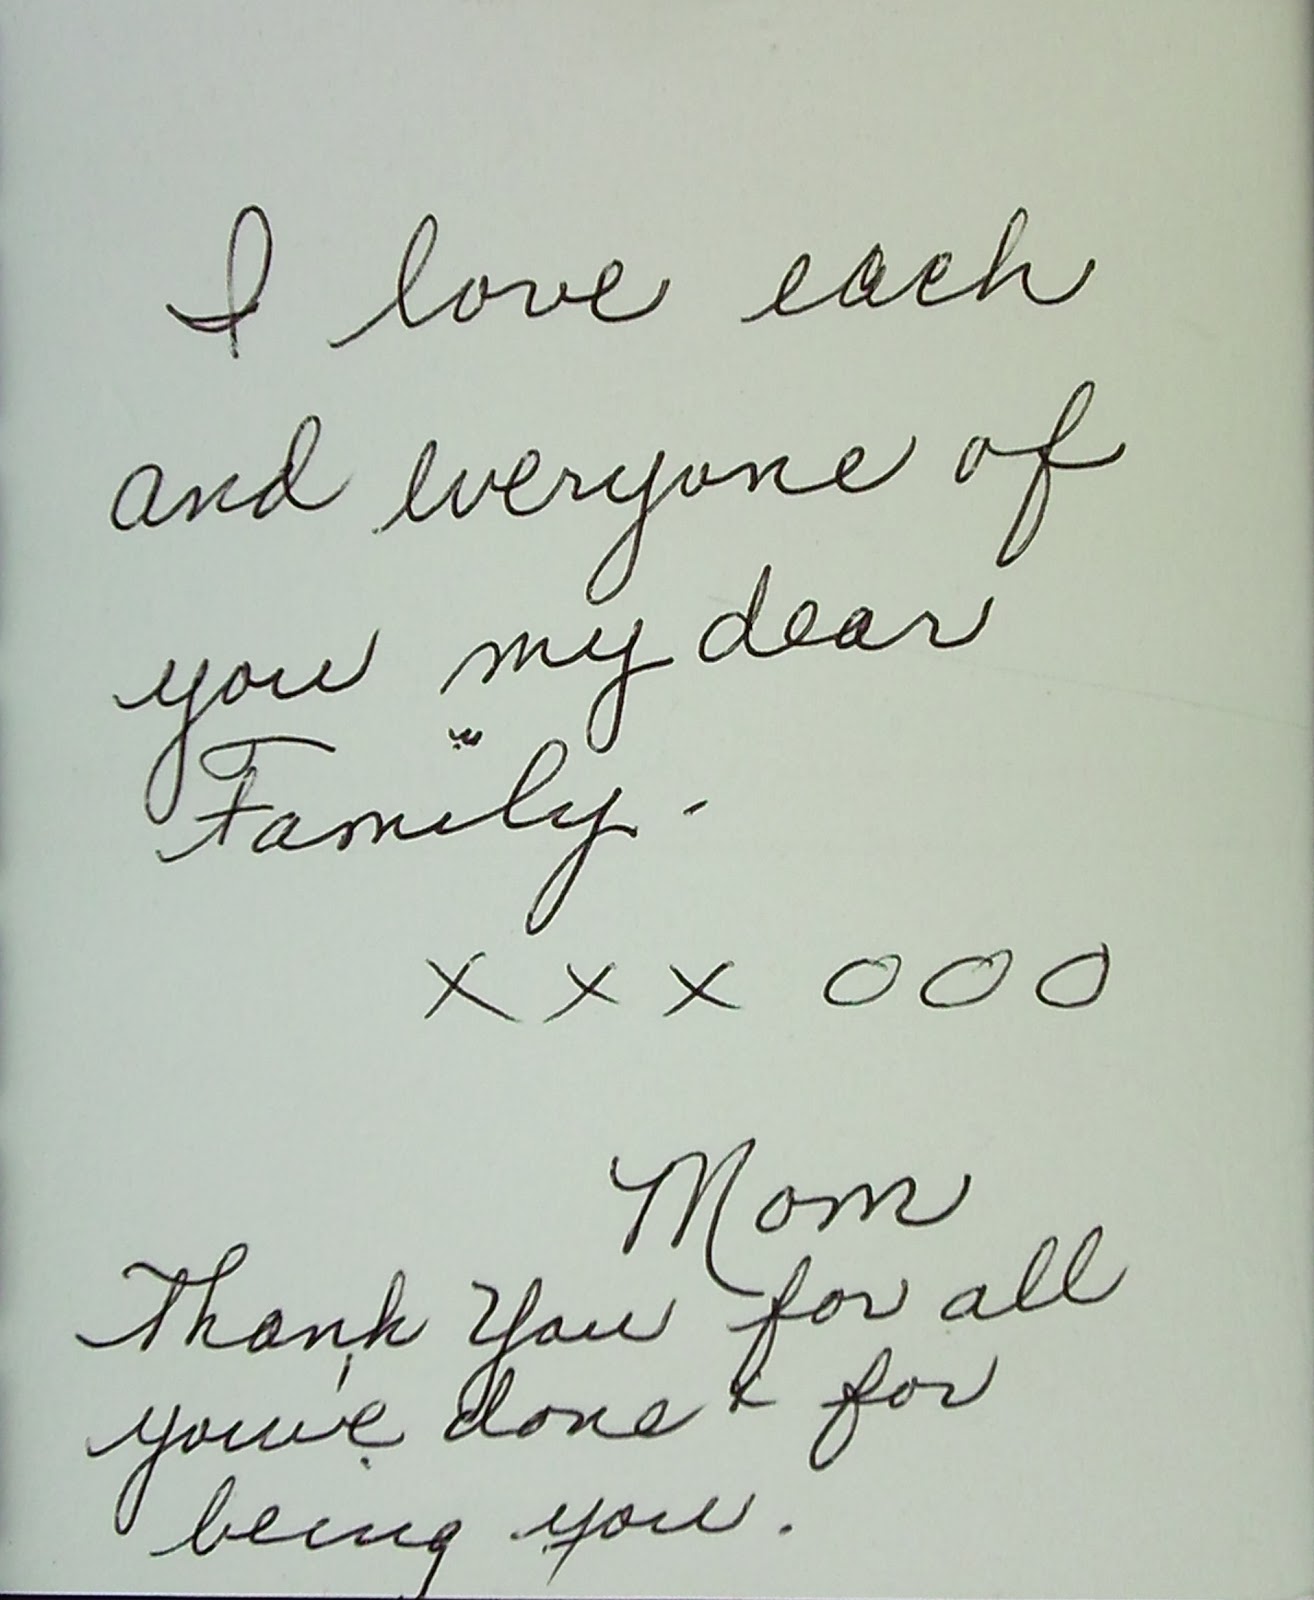 I love each
and everyone of
you my dear
Family.
x x x o o o
Mom
Thank You for all
you've done & for
being you.